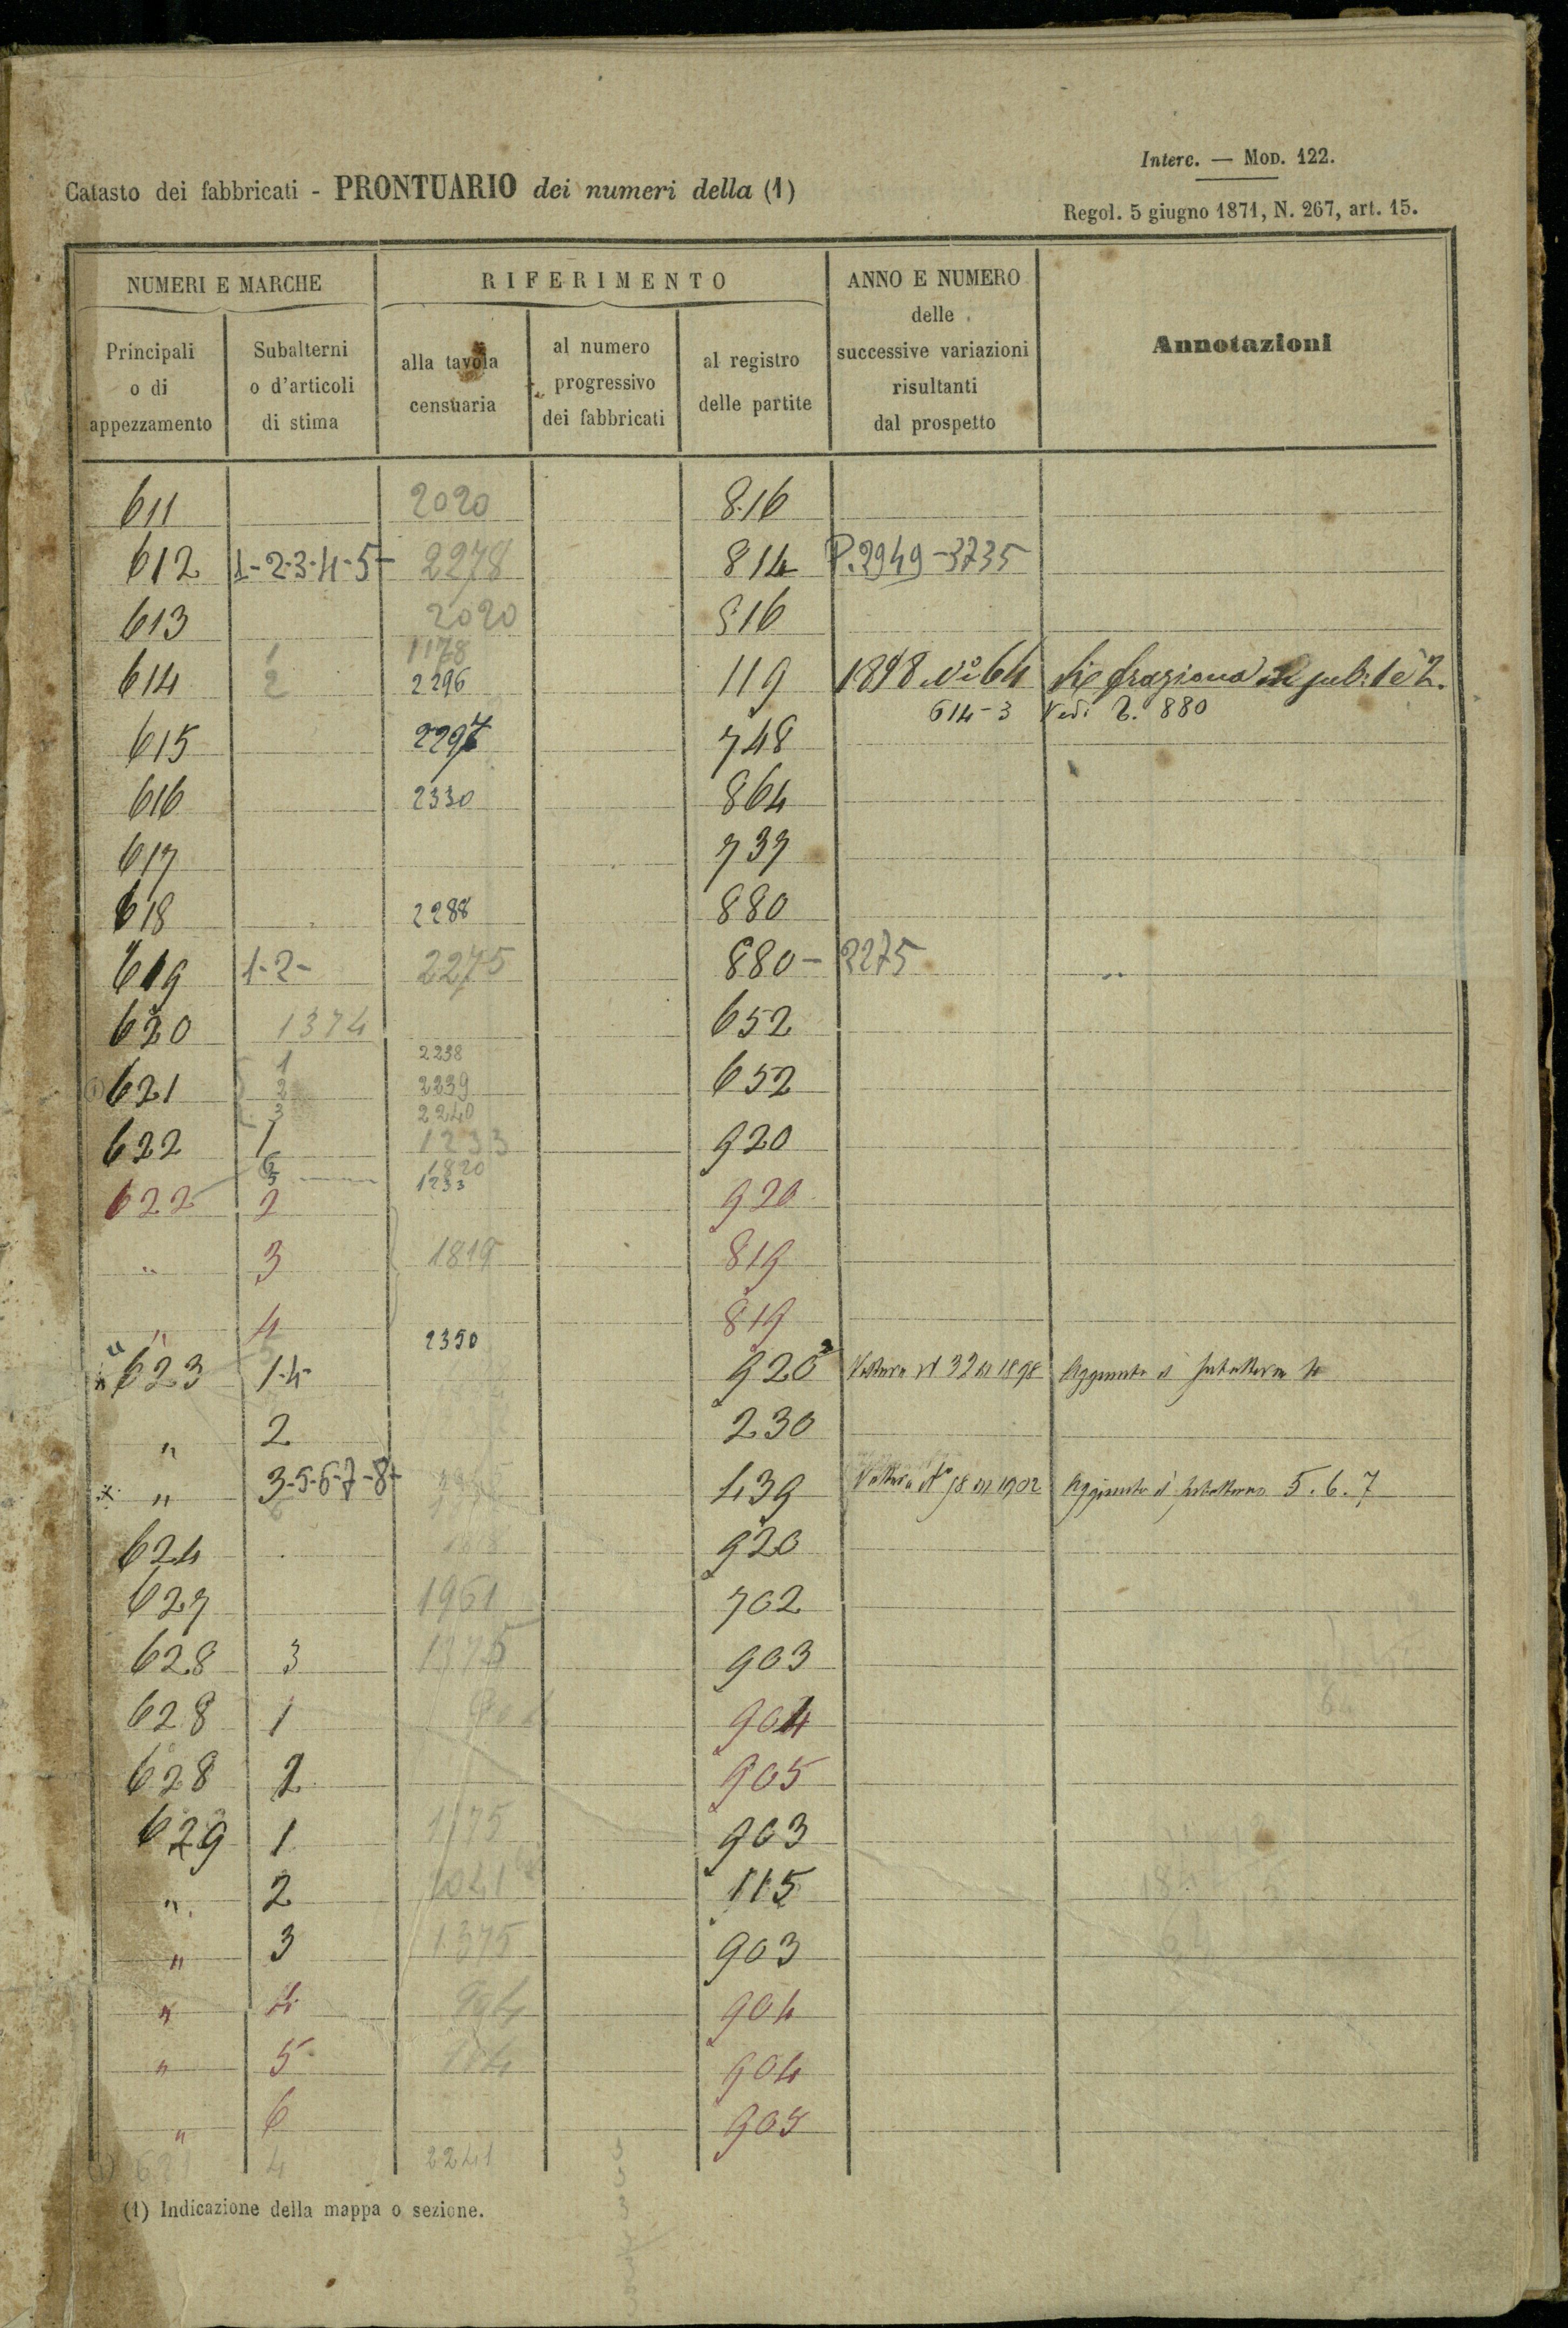 Interc. — MOD. 122.
Catasto dei fabbricati - PRONTUARIO dei numeri della (1)
Regol. 5 giugno 1871, N. 267, art. 15.
NUMERI E MARCHE
RIFERIMENTO
ANNO E NUMERO delle successive variazioni risultanti dal prospetto
Annotazioni
Principali o di appezzamento
Subalterni o d'articoli di stima
alla tavola censuaria
al numero progressivo dei fabbricati
al registro delle partite
611 2020 816
612 1-2-3-4-5- 2278 814 P. 2949-3735
613 2020 816
1 1178
614 2 2296 119 1898 N° 64 sub. 1 e 2.
614-3 Vedi 880
615 2297 748
616 2330 864
617 737
618 2288 880
619 1-2- 2275 880- 2275
620 1374 652
1 2238
621 2 2239 652
3 2240
622 1 1233 920
1820
1233
622 2 920
" 3 1819 819
" 4 819
2350
623 1-4- 920 Voltura N 32 1898 Aggiunto il subalterno 4
" 2 230
" 3-5-6-7-8- 439 Voltura N° 98 1902 Aggiunto il subalterno 5.6.7
624 920
627 1961 702
628 3 1375 903
628 1 904
628 2 905
629 1 1375 903
" 2 115
" 3 1375 903
" 4 904 904
" 5 904 904
" 6 905
621 4 2241
(1) Indicazione della mappa o sezione.